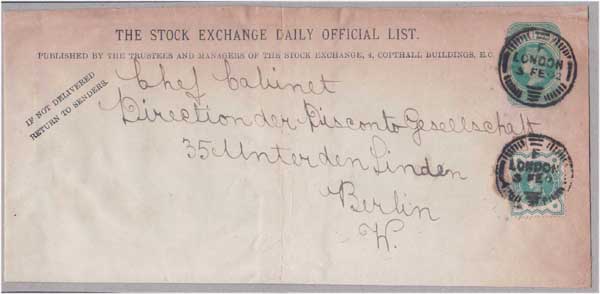 THE STOCK EXCHANGE DAILY OFFICIAL LIST.
PUBLISHED BY THE TRUSTEES AND MANAGERS OF THE STOCK EXCHANGE, 4, COPTHALL BUILDINGS, E.C.
IF NOT DELIVERED
RETURN TO SENDERS.
Chef Cabinet
Direction der Disconto Gesellschaft
35 Unter den Linden
Berlin
W.
LONDON
3 FE
F
LONDON
3 FE